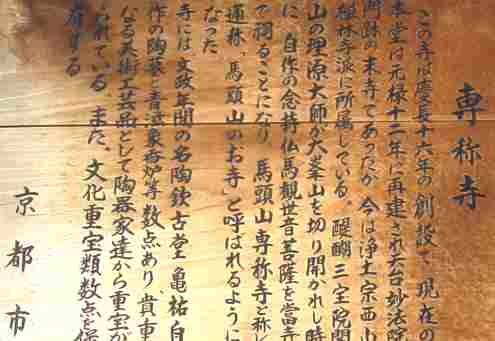 専称寺
この寺は慶長十六年の創設で、現在の
本堂は元禄十二年に再建され天台妙法院
門跡の末寺であったが、今は浄土宗西山
禅林寺派に所属している。醍醐三宝院開
山の理源大師が大峯山を切り開かれし時
に、自作の念持仏馬観世音菩薩を當寺
で祠ることになり、馬頭山専称寺と称し
通称、馬頭山のお寺」と呼ばれるように
なった
寺には文政年間の名陶欽古堂亀祐自
作の陶藝、青磁象香炉等数点あり、貴重
なる美術工芸品として陶器家達から重宝が
られている。また、文化重宝類数点を保
有する
京都市